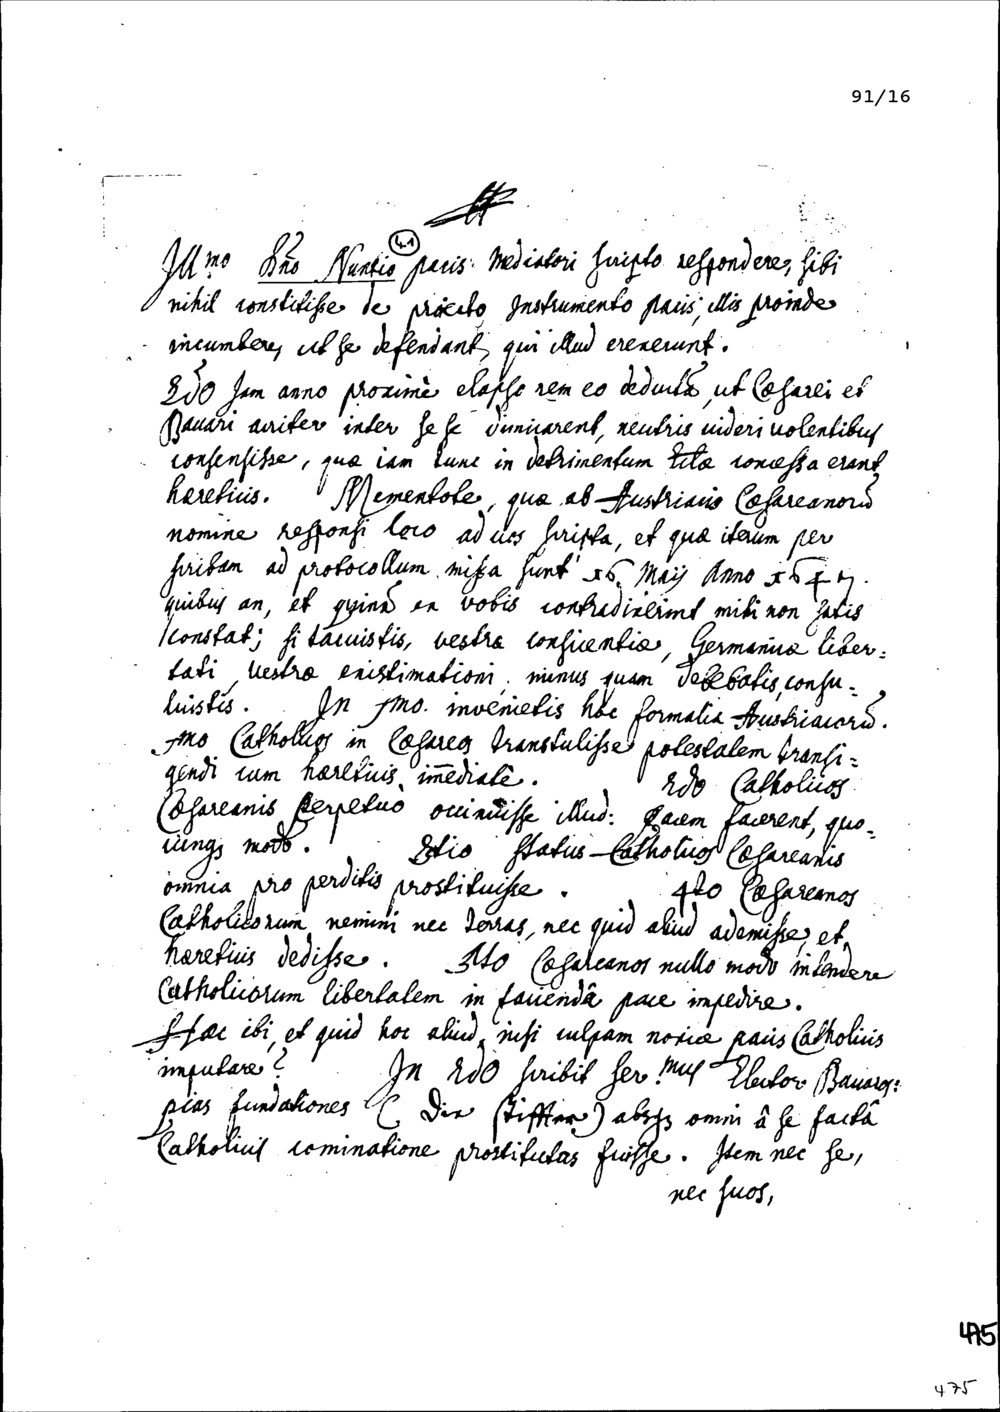 91/16
41
Ill.mo Dno Nuntio pacis Mediatori scripto respondere, sibi
nihil constitisse de proiecto Instrumento pacis, illis proinde
incumbere, ut se defendant, qui illud erexerunt.
2do Jam anno proxime elapso rem eo deductã, ut Cæsarei et
Bavari acriter inter se se dimicarent, neutris uideri uolentibus
consensisse, quæ iam tunc in detrimentum concessa erant
hæreticis. Mementote, quæ ab Austriacis Cæsareanorũ
nomine responsi loco ad uos scripta, et quæ iterum per
scribam ad protocollum missa sunt 16. Maij Anno 1647.
quibus an, et quinã ex vobis contradixerint mihi non satis
constat; si tacuistis, vestræ conscientiæ, Germanicæ liber=
tati, vestræ existimationi, minus quam debebatis, consu=
luistis. In 1mo. invenietis hæc formalia Austriacorũ.
1mo Catholicos in Cæsareos transtulisse potestatem transi=
gendi cum hæreticis im̃ediatè. 2do Catholicos
Cæsareanis perpetuò occinuisse illud: Pacem facerent, quo=
cunq3 modo. 3tio Status Catholicos Cæsareanis
omnia pro perditis prostituisse. 4to Cæsareanos
Catholicorum nemini nec terras, nec quid aliud ademisse, et
hæreticis dedisse. 5to Cæsareanos nullo modo intendere
Catholicorum libertatem in faciendâ pace impedire.
Hæc ibi, et quid hoc aliud, nisi culpam noxiæ pacis Catholicis
imputare? In 2do scribit Ser.mus Elector Bavarus:
pias fundationes (Die Stiffter) absq3 omni â se factâ
Catholicis cominatione prostitutas fuisse. Item nec se,
nec suos,
475
475